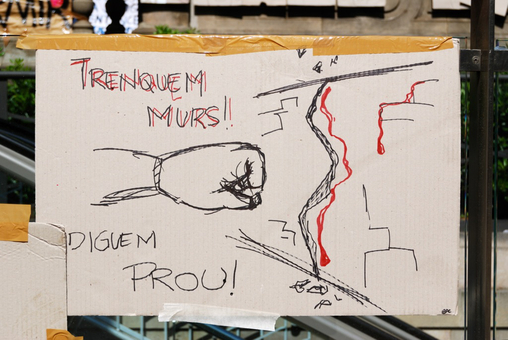 TRENQUEM
MURS!!
DIGUEM
PROU!